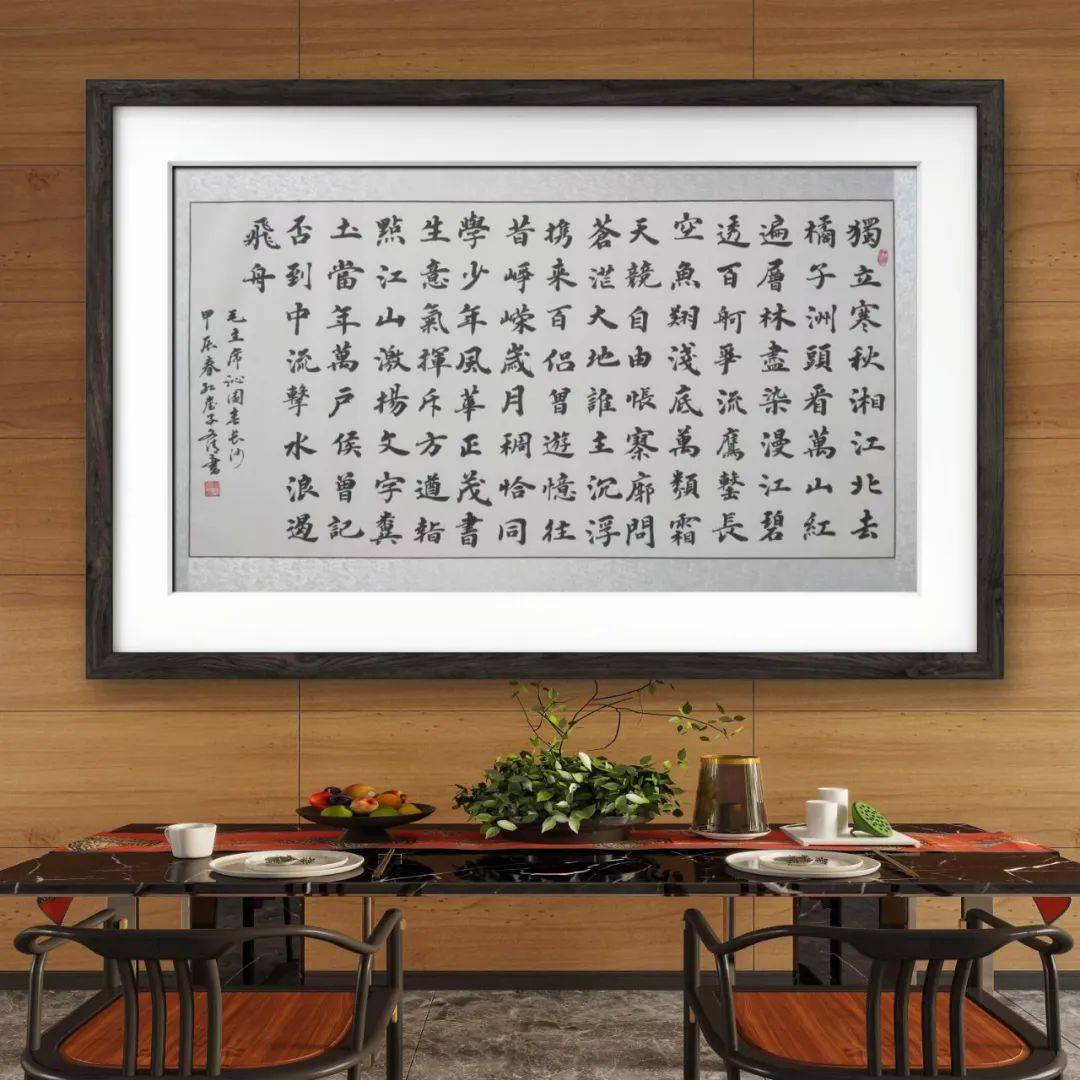 獨立寒秋湘江北去
橘子洲頭看萬山紅
遍層林盡染漫江碧
透百舸爭流鷹擊長
空魚翔淺底萬類霜
天競自由悵寥廓問
蒼茫大地誰主沉浮
携来百侶曾遊憶往
昔崢嶸歲月稠恰同
學少年風華正茂書
生意氣揮斥方遒指
點江山激揚文字糞
土當年萬戶侯曾記
否到中流擊水浪遏
飛舟
毛主席沁園春長沙
甲辰春書